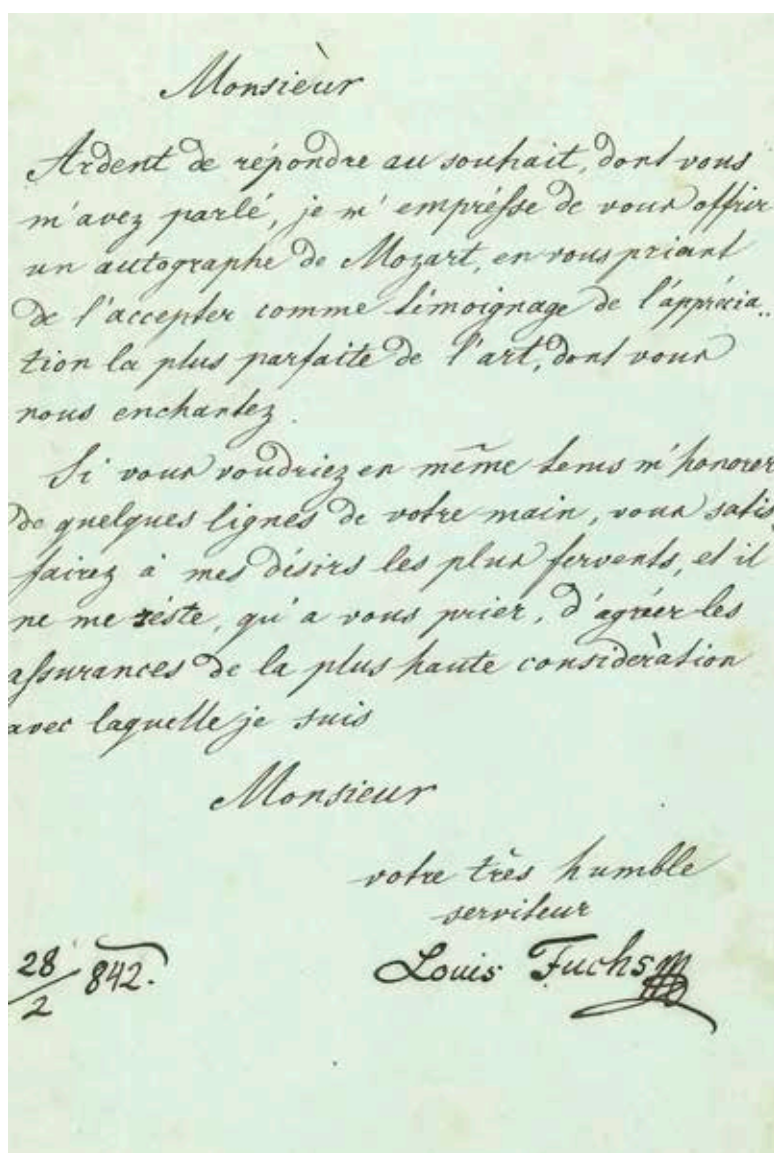 Monsieùr
Ardent de répondre au souhait, dont vous
m'avez parlé, je m'empréſse de vous offrir
un autographe de Mozart, en vous priant
de l'accepter comme témoignage de l'apprécia..
tion la plus parfaite de l'art, dont vous
nous enchantez.
Si vous voudriez en même tems m'honorer
de quelques lignes de votre main, vous satis
fairez à mes désirs les plus fervents, et il
ne me réste, qu'a vous prier, d'agréer les
aſsurances de la plus haute consideràtion
avec laquelle je suis
Monsieur
votre très humble
serviteur
28/2 842.
Louis Fuchs